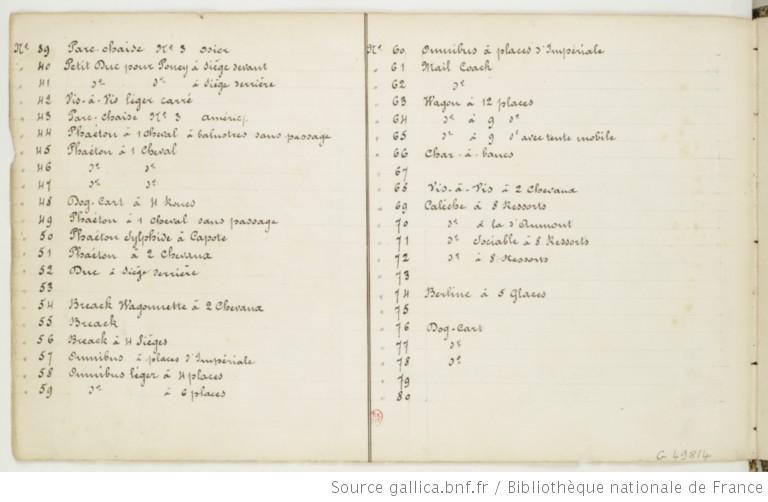 Nos 39 Parc-chaise No 3 osier
" 40 Petit Duc pour Poney à siège devant
" 41 do do à siège derrière
" 42 Vis-à-Vis léger carré
" 43 Parc-chaise No 3 améric.
" 44 Phaéton à 1 cheval à balustres sans passage
" 45 Phaéton à 1 Cheval
" 46 do do
" 47 do do
" 48 Dog-Cart à 4 Roues
" 49 Phaéton à 1 cheval sans passage
" 50 Phaéton Sylphide à Capote
" 51 Phaéton à 2 Chevaux
" 52 Duc à siège derrière
" 53
" 54 Breack Wagonnette à 2 Chevaux
" 55 Breack
" 56 Breack à 4 Sièges
" 57 Omnibus à places d'Impériale
" 58 Omnibus léger à 4 places
" 59 do à 6 places
Nos 60 Omnibus à places d'Impériale
" 61 Mail Coach
" 62 do
" 63 Wagon à 12 places
" 64 do à 9 do
" 65 do à 9 do avec tente mobile
" 66 Char-à-bancs
" 67
" 68 Vis-à-Vis à 2 Chevaux
" 69 Calèche à 8 Ressorts
" 70 do à la d'Aumont
" 71 do Sociable à 8 Ressorts
" 72 do à 8 Ressorts
" 73
" 74 Berline à 5 Glaces
" 75
" 76 Dog-Cart
" 77 do
" 78 do
" 79
" 80
G 49814
Source gallica.bnf.fr / Bibliothèque nationale de France